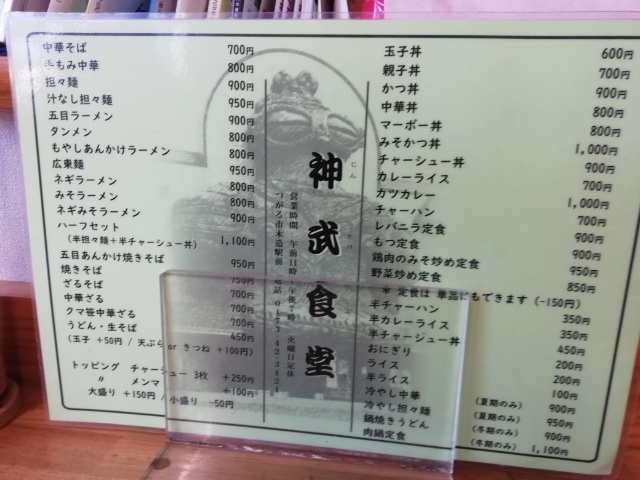 中華そば 700円
手もみ中華 800円
担々麺 900円
汁なし担々麺 950円
五目ラーメン 900円
タンメン 800円
もやしあんかけラーメン 800円
広東麺 950円
ネギラーメン 800円
みそラーメン 800円
ネギみそラーメン 900円
ハーフセット
(半担々麺+半チャーシュー丼) 1,100円
五目あんかけ焼きそば 950円
焼きそば 750円
ざるそば 700円
中華ざる 700円
クマ笹中華ざる 700円
うどん・生そば 450円
(玉子 +50円 / 天ぷら or きつね +100円)
トッピング チャーシュー 3枚 +250円
〃 メンマ +100円
大盛り +150円 / 小盛り -50円
神武食堂
営業時間 午前11時〜午後7時 火曜日定休
つがる市木造駅前 電話 0173-42-3421
玉子丼 600円
親子丼 700円
かつ丼 900円
中華丼 800円
マーボー丼 800円
みそかつ丼 1,000円
チャーシュー丼 900円
カレーライス 700円
カツカレー 1,000円
チャーハン 700円
レバニラ定食 900円
もつ定食 900円
鶏肉のみそ炒め定食 950円
野菜炒め定食 850円
※ 定食は 単品にもできます (-150円)
半チャーハン 350円
半カレーライス 350円
半チャーシュー丼 450円
おにぎり 200円
ライス 200円
半ライス 100円
冷やし中華 (夏期のみ) 900円
冷やし担々麺 (夏期のみ) 950円
鍋焼きうどん (冬期のみ) 900円
肉鍋定食 (冬期のみ) 1,100円